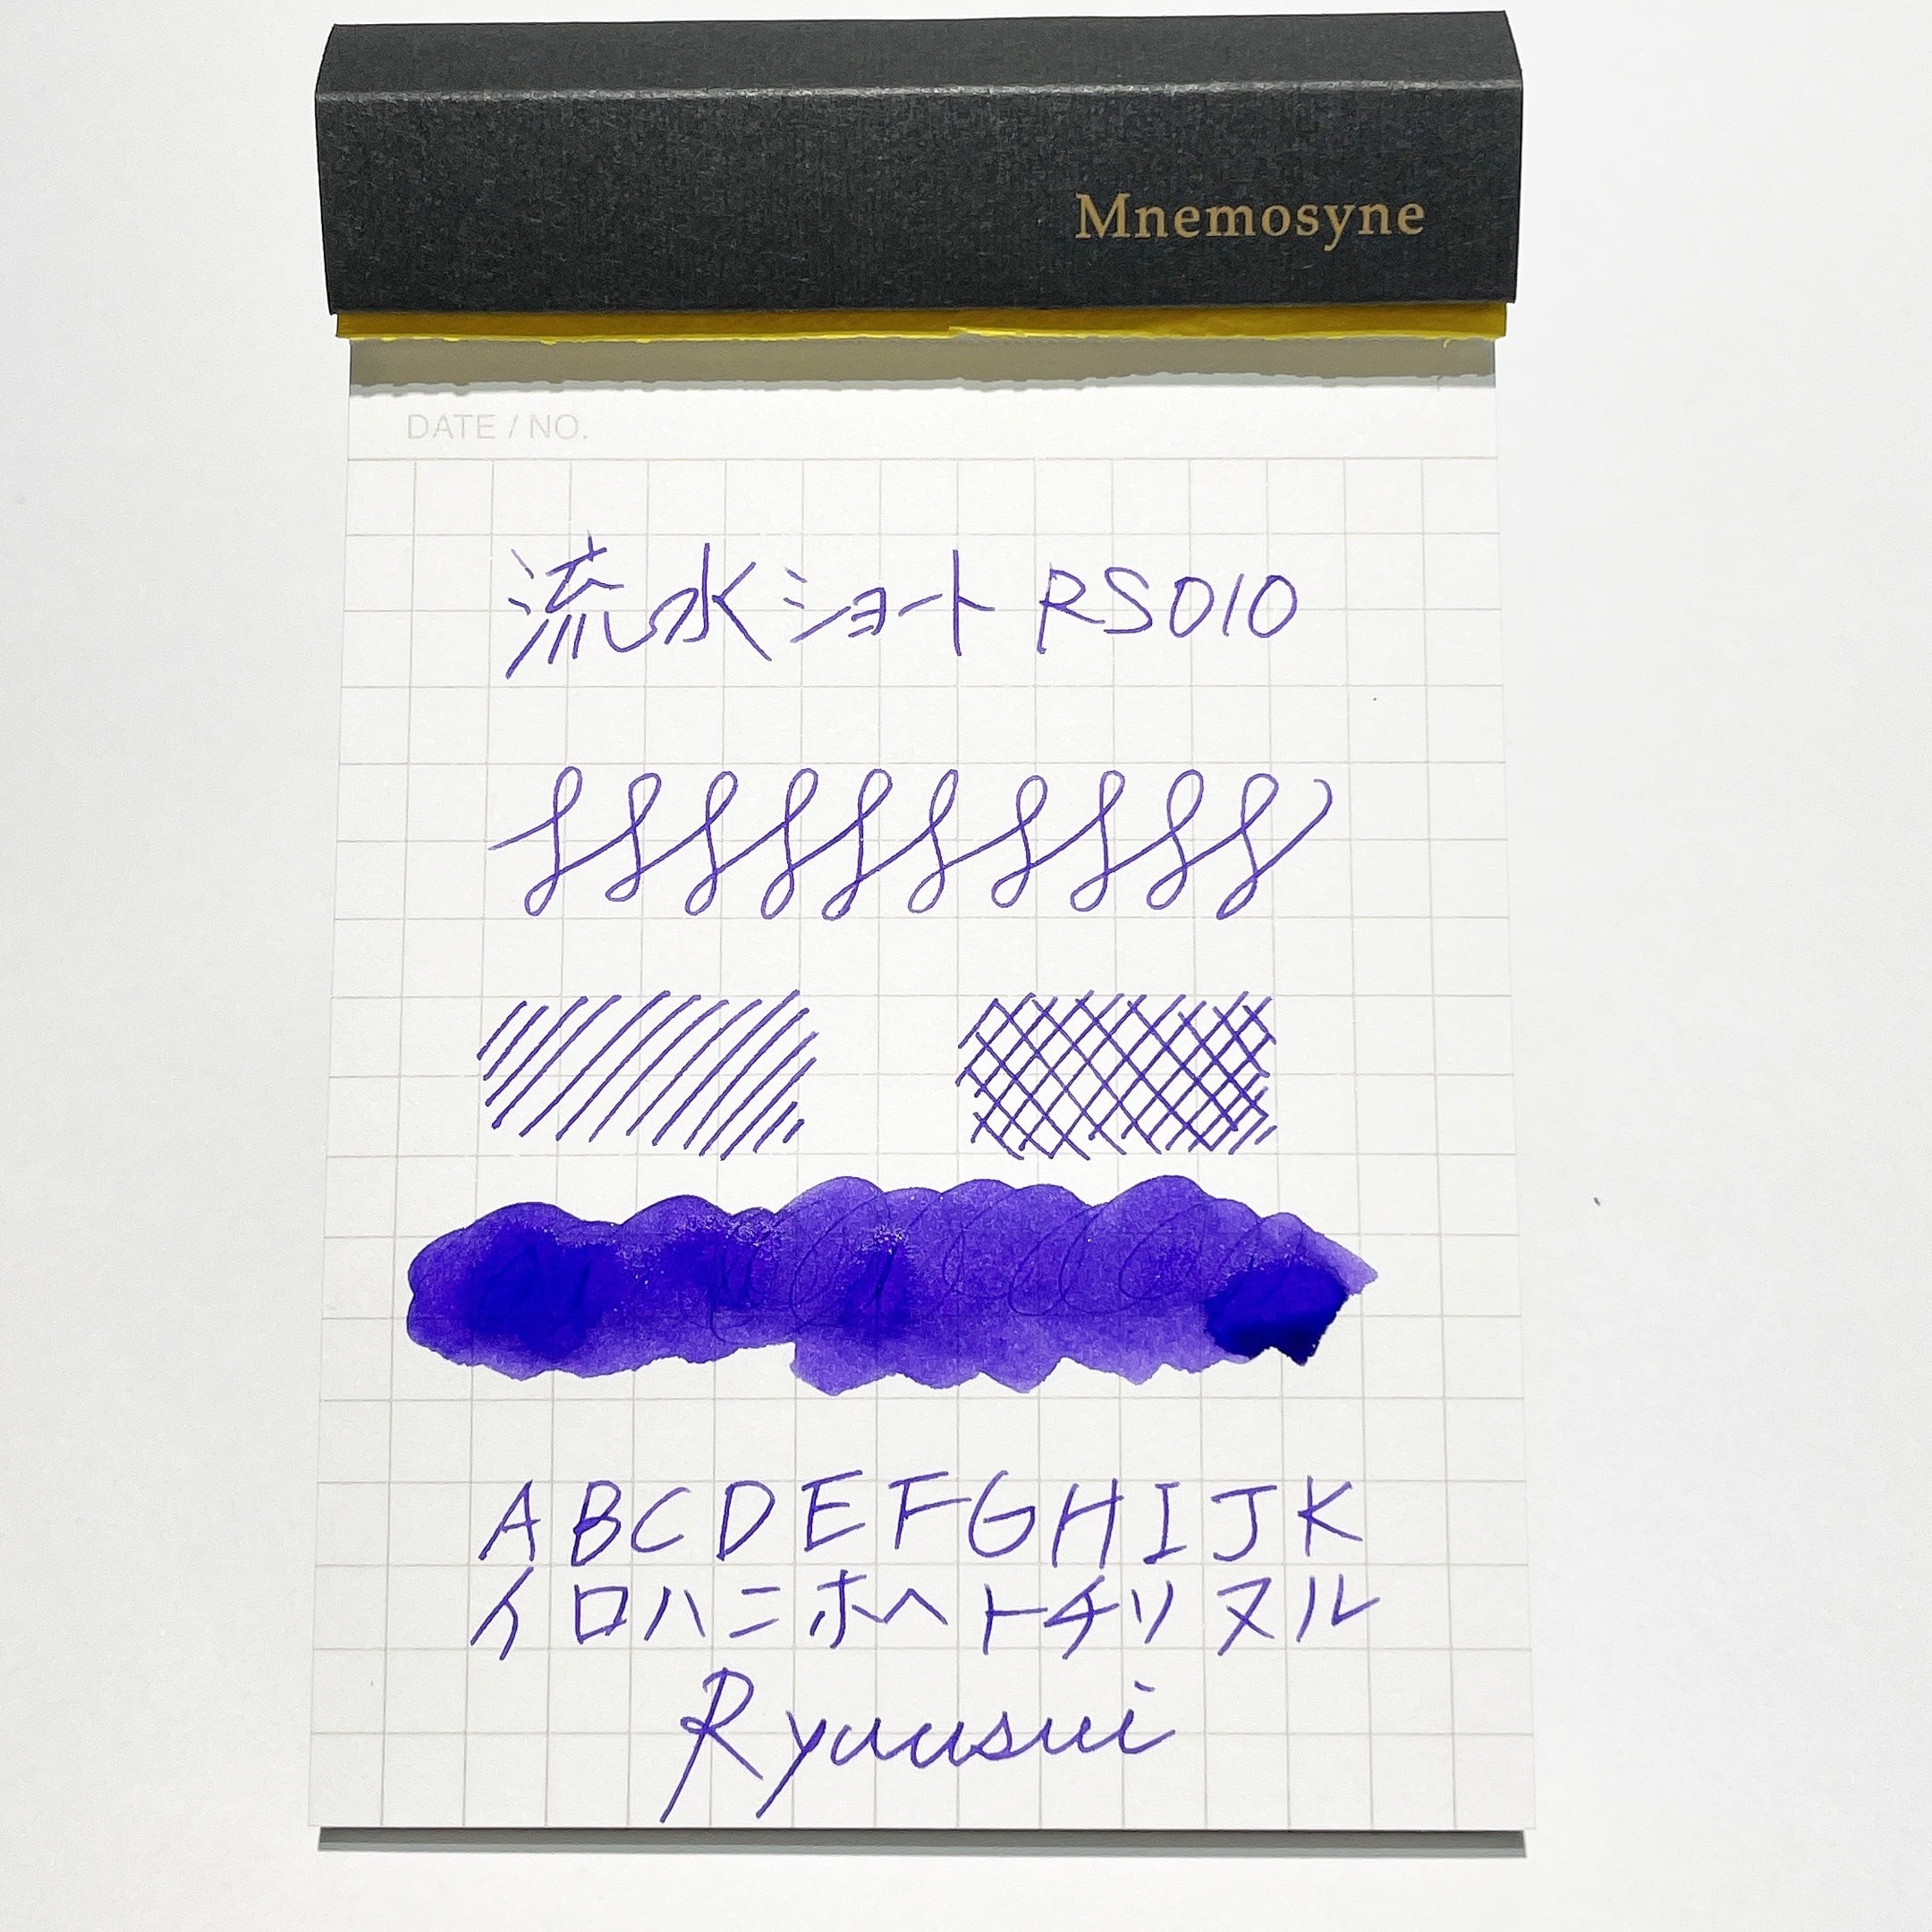 Mnemosyne
DATE / NO.
流水ショート RS010
A B C D E F G H I J K
イ ロ ハ ニ ホ ヘ ト チ リ ヌ ル
Ryuusui